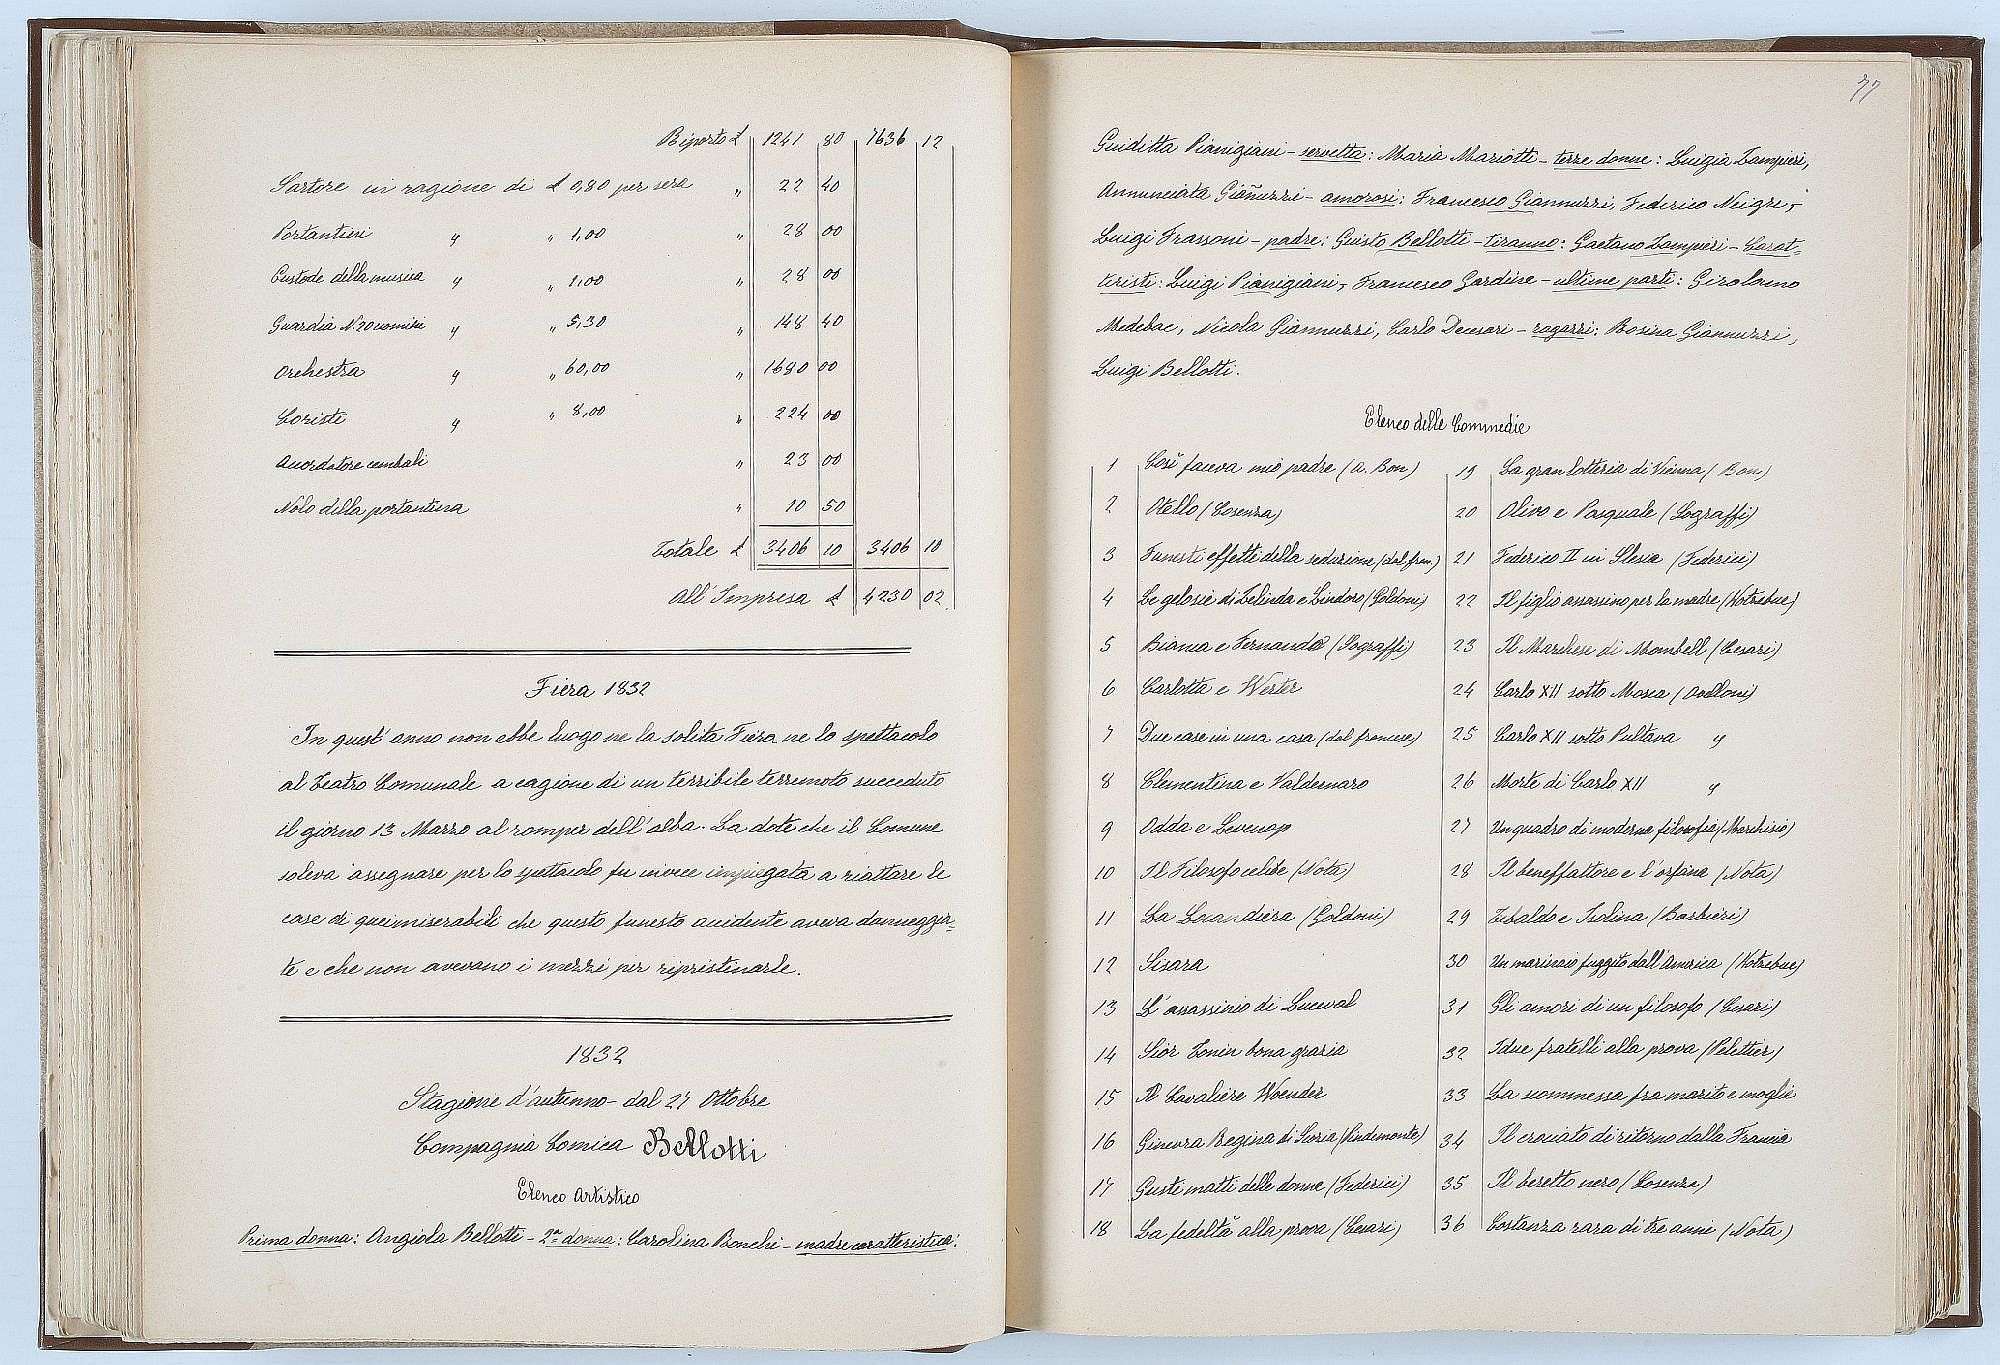 Riporto £ 1241 80 7636 12
Sartore in ragione di £ 0,80 per sera " 22 40
Portantieri " " 1,00 " 28 00
Custode della musica " " 1,00 " 28 00
Guardia N. 20 comuni " " 5,30 " 148 40
Orchestra " " 60,00 " 1680 00
Coriste " " 8,00 " 224 00
Accordatore cembali " 23 00
Nolo della portantina " 10 50
Totale £ 3406 10 3406 10
All'Impresa £ 4230 02
Fiera 1832
In quest'anno non ebbe luogo ne la solita Fiera ne lo spettacolo
al Teatro Comunale a cagione di un terribile terremoto succeduto
il giorno 13 Marzo al romper dell'alba. La dote che il Comune
soleva assegnare per lo spettacolo fu invece impiegata a riattare le
case di quei miserabili che questo funesto accidente aveva danneggia=
te e che non avevano i mezzi per ripristinarle.
1832
Stagione d'autunno - dal 27 Ottobre
Compagnia Comica Bellotti
Elenco Artistico
Prima donna: Angiola Bellotti - 2ª donna: Carolina Bonchi - madre caratteristica:
77
Giuditta Pianigiani - servetta: Maria Mariotti - terze donne: Luigia Zampieri,
Annunciata Giañuzzi - amorosi: Francesco Giannuzzi, Federico Neigre,
Luigi Frassoni - padre: Guisto Bellotti - tiranno: Gaetano Zampieri - Carat=
teristi: Luigi Pianigiani, Francesco Gardine - ultime parti: Girolamo
Medebac, Nicola Giannuzzi, Carlo Decesari - ragazzi: Rosina Giannuzzi,
Luigi Bellotti.
Elenco delle Commedie
1 Così faceva mio padre (A. Bon)
2 Otello (Cosenza)
3 Funesti effetti della seduzione (dal fran)
4 Le gelosie di Zelinda e Lindoro (Goldoni)
5 Bianca e Fernando (Sograffi)
6 Carlotta e Werter
7 Due case in una casa (dal francese)
8 Clementina e Valdemaro
9 Odda e Levenop
10 Il Filosofo celibe (Nota)
11 La Locandiera (Goldoni)
12 Sisara
13 L'assassinio di Luceval
14 Sior Tonin bona grazia
15 Il Cavaliere Woender
16 Ginevra Regina di Scozia (Pindemonte)
17 Gusti matti delle donne (Federici)
18 La fedeltà alla prova (Cesari)
19 La gran lotteria di Vienna (Bon)
20 Olivo e Pasquale (Sograffi)
21 Federico II in Slesia (Federici)
22 Il figlio assassino per la madre (Kotzebue)
23 Il Marchese di Mombell (Cesari)
24 Carlo XII sotto Mosca (Avelloni)
25 Carlo XII sotto Pultava "
26 Morte di Carlo XII "
27 Un quadro di moderna filosofia (Marchisio)
28 Il beneffattore e l'orfana (Nota)
29 Tebaldo e Isolina (Barbieri)
30 Un marinaio fuggito dall'America (Kotzebue)
31 Gli amori di un filosofo (Cesari)
32 I due fratelli alla prova (Pelettier)
33 La scommessa fra marito e moglie
34 Il crociato di ritorno dalla Francia
35 Il beretto nero (Cosenza)
36 Costanza rara di tre anni (Nota)